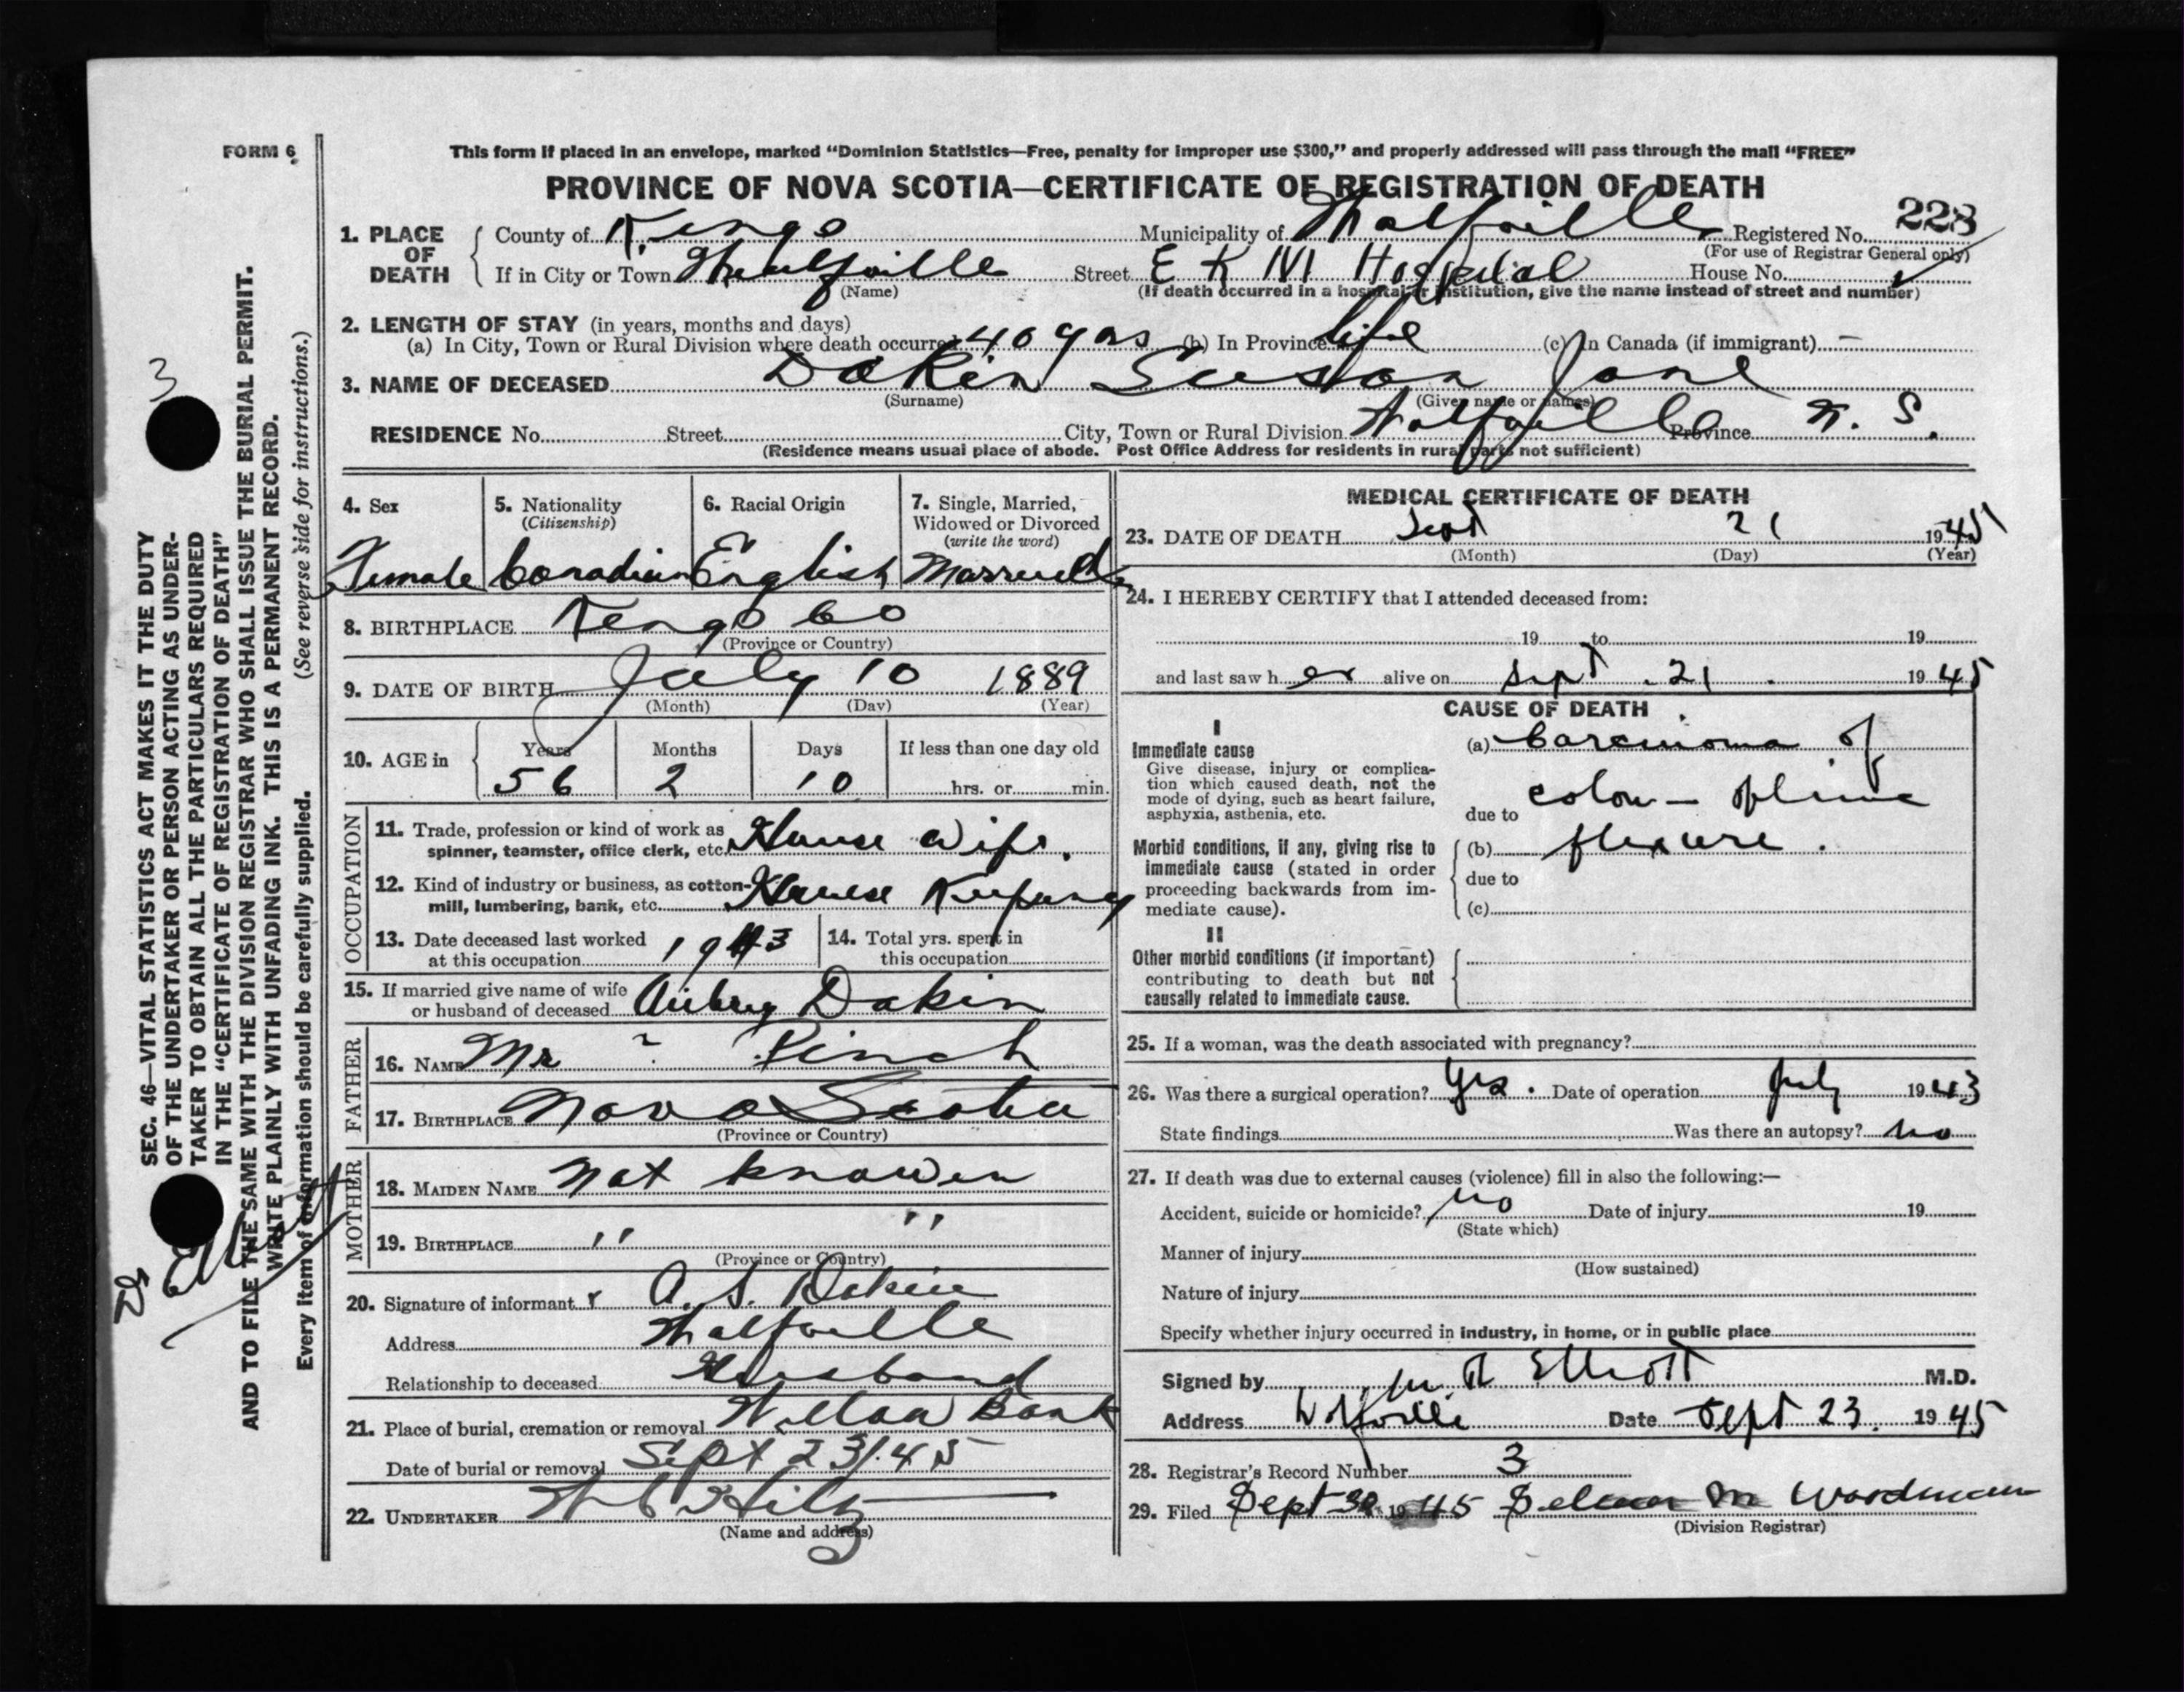 FORM 6
This form if placed in an envelope, marked “Dominion Statistics—Free, penalty for improper use $300,” and properly addressed will pass through the mail “FREE”
PROVINCE OF NOVA SCOTIA—CERTIFICATE OF REGISTRATION OF DEATH
228
1. PLACE OF DEATH
County of Kings Municipality of Wolfville Registered No.
(For use of Registrar General only)
If in City or Town Wolfville Street E K M Hospital House No.
(Name) (If death occurred in a hospital or institution, give the name instead of street and number)
2. LENGTH OF STAY (in years, months and days)
(a) In City, Town or Rural Division where death occurred 40 yrs (b) In Province life (c) In Canada (if immigrant) —
3. NAME OF DECEASED Dakin Susan Jane
(Surname) (Given name or names)
RESIDENCE No. Street City, Town or Rural Division Wolfville Province N. S.
(Residence means usual place of abode. Post Office Address for residents in rural parts not sufficient)
4. Sex
Female
5. Nationality
(Citizenship)
Canadian
6. Racial Origin
English
7. Single, Married,
Widowed or Divorced
(write the word)
Married
8. BIRTHPLACE Kings Co
(Province or Country)
9. DATE OF BIRTH July 10 1889
(Month) (Day) (Year)
10. AGE in
Years Months Days If less than one day old
56 2 10 hrs. or min.
OCCUPATION
11. Trade, profession or kind of work as
spinner, teamster, office clerk, etc. House Wife.
12. Kind of industry or business, as cotton-
mill, lumbering, bank, etc. House Keeping
13. Date deceased last worked
at this occupation 1943
14. Total yrs. spent in
this occupation
15. If married give name of wife
or husband of deceased Aubrey Dakin
FATHER
16. NAME Mr ? Pinch
17. BIRTHPLACE Nova Scotia
(Province or Country)
MOTHER
18. MAIDEN NAME Not known
19. BIRTHPLACE " "
(Province or Country)
20. Signature of informant A. S. Dakin
Address Wolfville
Relationship to deceased Husband
21. Place of burial, cremation or removal Willow Bank
Date of burial or removal Sept 23/45
22. UNDERTAKER W C Hiltz
(Name and address)
MEDICAL CERTIFICATE OF DEATH
23. DATE OF DEATH Sept 21 1945
(Month) (Day) (Year)
24. I HEREBY CERTIFY that I attended deceased from:
19 to 19
and last saw h er alive on Sept. 21. 1945
CAUSE OF DEATH
I
Immediate cause
Give disease, injury or complica-
tion which caused death, not the
mode of dying, such as heart failure,
asphyxia, asthenia, etc.
(a) Carcinoma of
due to colon — splenic
Morbid conditions, if any, giving rise to
immediate cause (stated in order
proceeding backwards from im-
mediate cause).
(b) flexure.
due to
(c)
II
Other morbid conditions (if important)
contributing to death but not
causally related to immediate cause.
25. If a woman, was the death associated with pregnancy?
26. Was there a surgical operation? Yes. Date of operation July 1943
State findings Was there an autopsy? no
27. If death was due to external causes (violence) fill in also the following:—
Accident, suicide or homicide? no Date of injury 19
(State which)
Manner of injury
(How sustained)
Nature of injury
Specify whether injury occurred in industry, in home, or in public place
Signed by M. R Elliott M.D.
Address Wolfville Date Sept 23. 1945
28. Registrar's Record Number 3
29. Filed Sept 30 1945 M Woodman
(Division Registrar)
3
SEC. 46—VITAL STATISTICS ACT MAKES IT THE DUTY
OF THE UNDERTAKER OR PERSON ACTING AS UNDER-
TAKER TO OBTAIN ALL THE PARTICULARS REQUIRED
IN THE “CERTIFICATE OF REGISTRATION OF DEATH”
AND TO FILE THE SAME WITH THE DIVISION REGISTRAR WHO SHALL ISSUE THE BURIAL PERMIT.
WRITE PLAINLY WITH UNFADING INK. THIS IS A PERMANENT RECORD.
Every item of information should be carefully supplied. (See reverse side for instructions.)
Dr Elliott